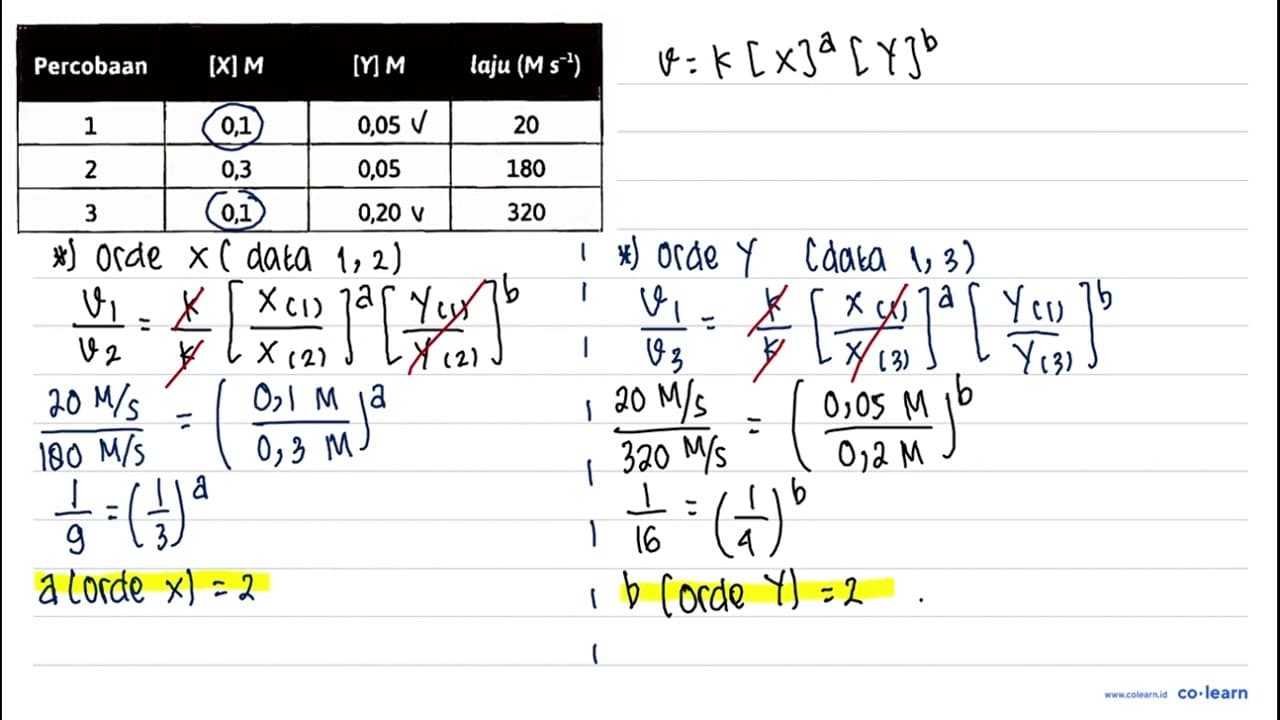 Percobaan [X] M [Y] M laju (M s⁻¹)
1 0,1 0,05 √ 20
2 0,3 0,05 180
3 0,1 0,20 v 320
v = k [X]ᵃ [Y]ᵇ
*) orde x ( data 1, 2)
v₁/v₂ = k/k [X(1)/X(2)]ᵃ [Y(1)/Y(2)]ᵇ
20 M/s / 180 M/s = (0,1 M / 0,3 M)ᵃ
1/9 = (1/3)ᵃ
a (orde x) = 2
*) orde Y (data 1, 3)
v₁/v₃ = k/k [X(1)/X(3)]ᵃ [Y(1)/Y(3)]ᵇ
20 M/s / 320 M/s = (0,05 M / 0,2 M)ᵇ
1/16 = (1/4)ᵇ
b (orde Y) = 2 .
www.colearn.id co·learn